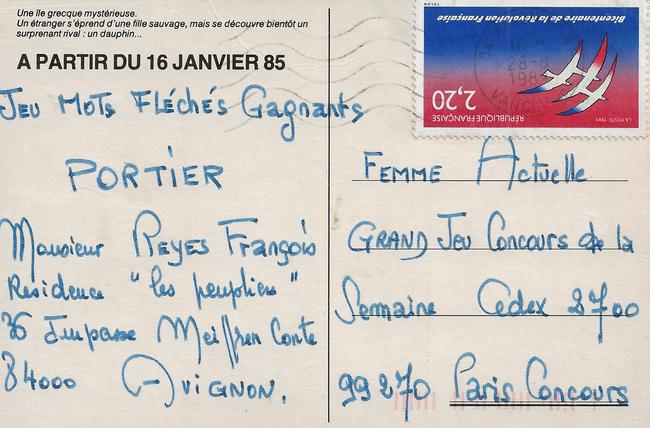 Une île grecque mystérieuse.
Un étranger s'éprend d'une fille sauvage, mais se découvre bientôt un
surprenant rival : un dauphin...
A PARTIR DU 16 JANVIER 85
JEU MOTS FLÉCHÉS Gagnants
PORTIER
Monsieur REYES François
Residence "les peupliers"
36 Impasse Meiffren Conte
84000 AVIGNON.
FOLON
Bicentenaire de la Révolution Française
2,20
RÉPUBLIQUE FRANÇAISE
LA POSTE 1989
84
28-8
VAUCLUSE
FEMME Actuelle
GRAND Jeu Concours de la
Semaine Cedex 2700
99270 Paris Concours